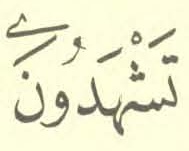 تَشْهَدُونَ